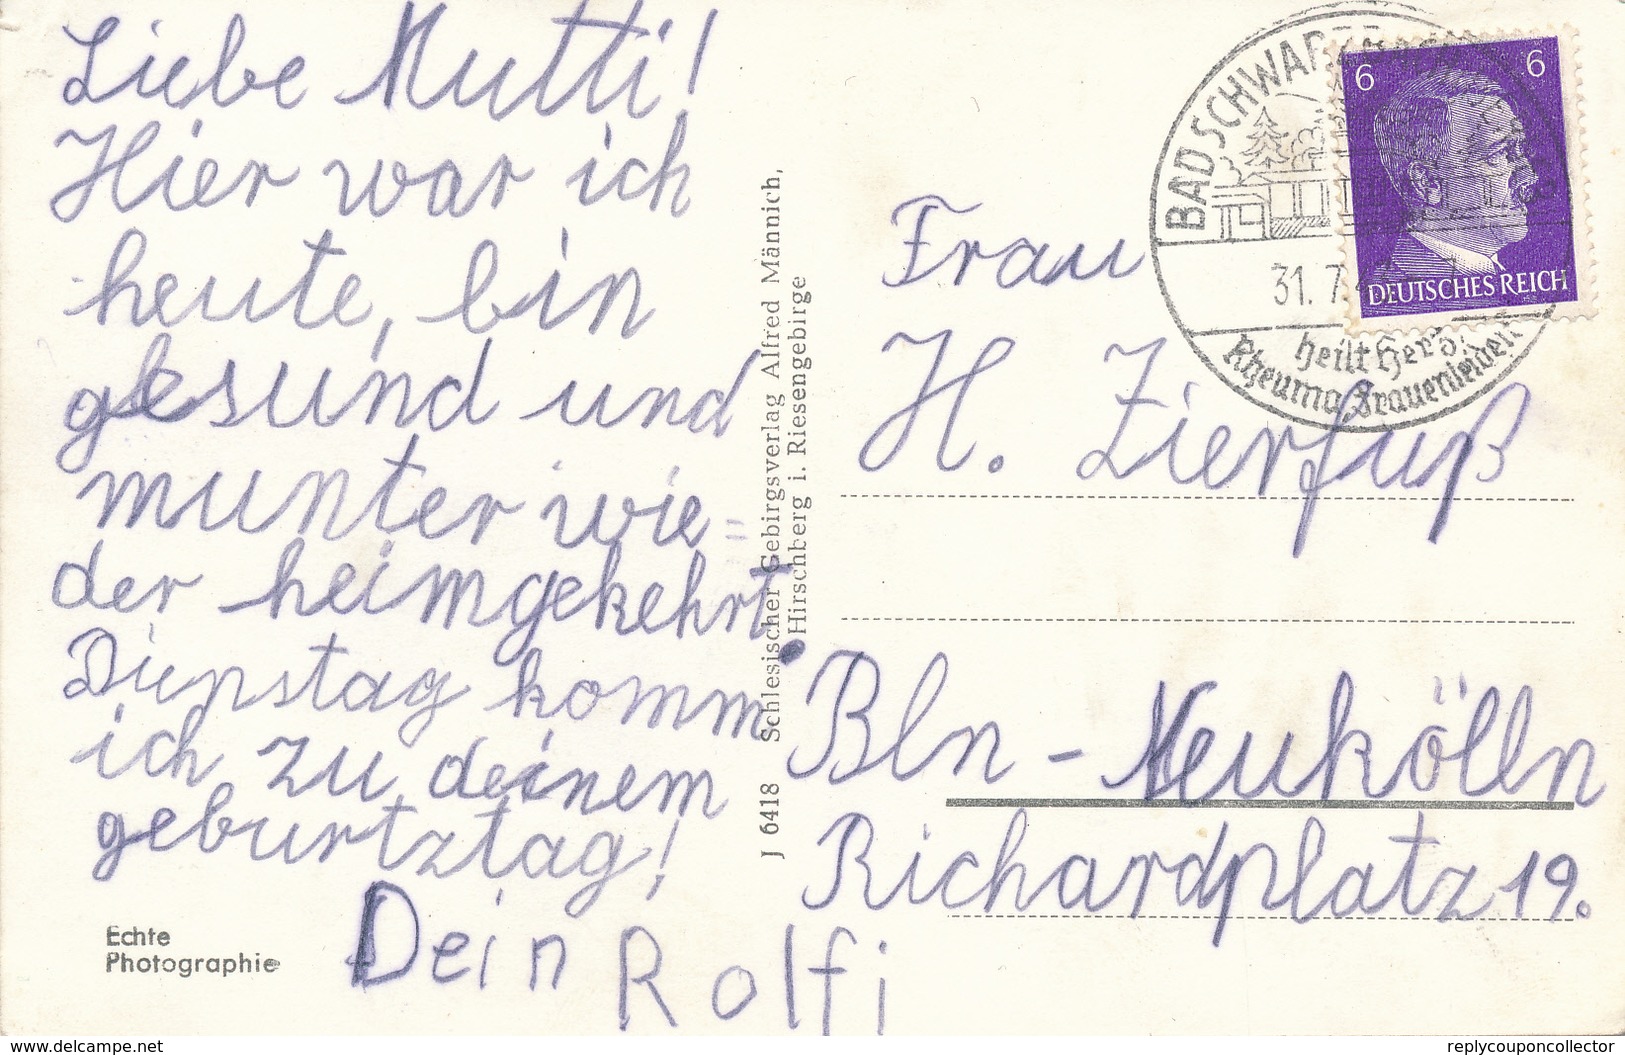 Liebe Mutti!
Hier war ich
heute, bin
gesund und
munter wie=
der heimgekehrt.
Dienstag komm
ich zu deinem
geburtztag!
Dein Rolfi
Echte
Photographie
J 6418 Schlesischer Gebirgsverlag Alfred Männich,
Hirschberg i. Riesengebirge
BAD SCHWARZBACH
31. 7.
heilt Herz,
Rheuma, Frauenleiden
6 6
DEUTSCHES REICH
Frau
H. Zierfuß
Bln - Neukölln
Richardplatz 19.
delcampe.net
replycouponcollector